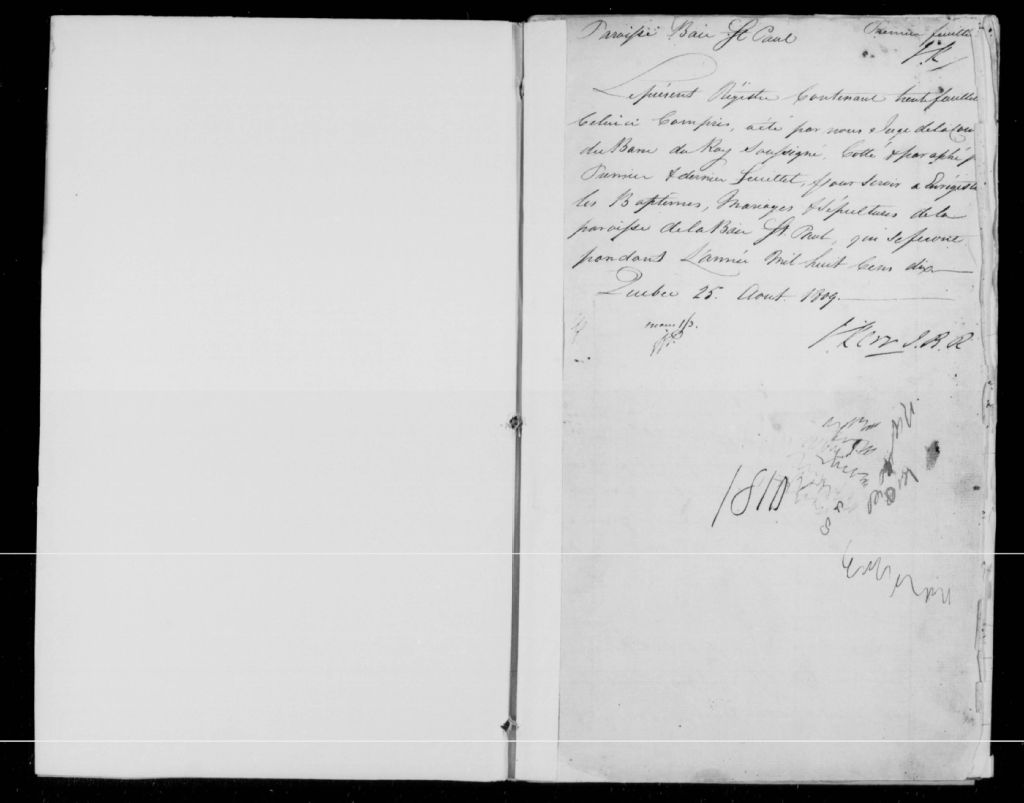 Paroisse Baie St Paul Premier feuillet
J.K
Le présent Régistre Contenant trent feuillets
Celui ci Compris, a été par nous Juge de la Cour
du Banc du Roy Soussigné, Cotté & paraphé p
Premier & dernier feuillet, pour servir a Enrégist
les Baptêmes, Mariages & Sépultures de la
paroisse de la Baie St. Paul, qui se feront
pendant L'année Mil huit Cens dix
Quebec 25. Aout. 1809.
J Kerr J.B.R
1810